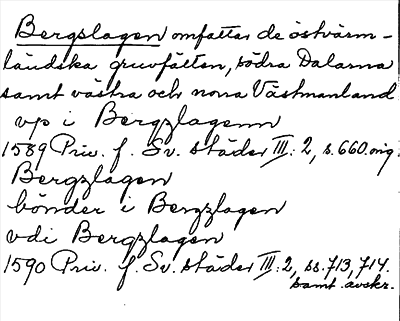 Bergslagen omfattar de östvärm-
ländska gruvfälten, södra Dalarna
samt västra och norra Västmanland
vp i Bergzlagenn
1589 Priv. f. Sv. städer III: 2, s. 660. orig.
Bergzlagen
bönder i Bergzlagen
vdi Bergzlagen
1590 Priv. f. Sv. städer III: 2, ss. 713, 714.
samt. avskr.